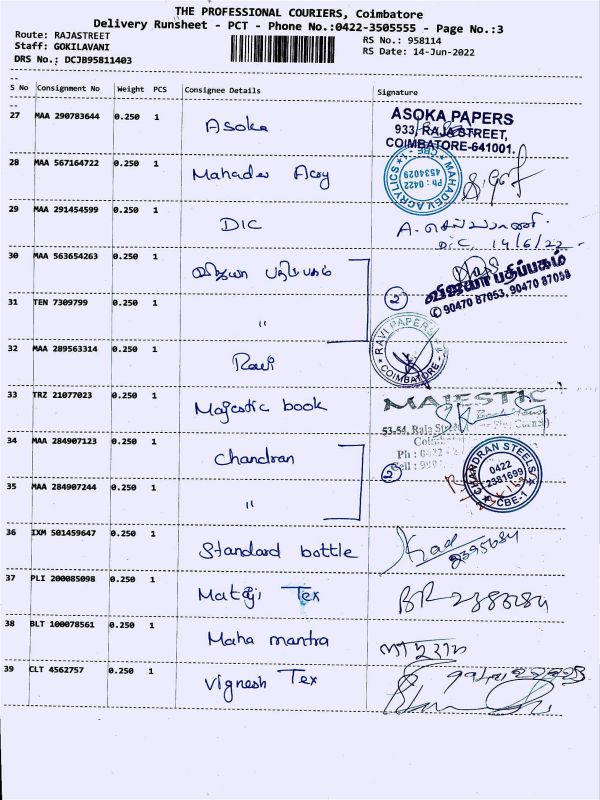 THE PROFESSIONAL COURIERS, Coimbatore
Delivery Runsheet - PCT - Phone No.:0422-3505555 - Page No.:3
Route: RAJASTREET
RS No.: 958114
Staff: GOKILAVANI
RS Date: 14-Jun-2022
DRS No.: DCJB95811403
S No Consignment No Weight PCS Consignee Details Signature
27 MAA 290783644 0.250 1 Asoka
ASOKA PAPERS
933, RAJA STREET,
COIMBATORE-641001.
28 MAA 567164722 0.250 1 Mahadev Acry
MAHADEV ACRYLICS CBE-1
Ph : 0422
4534029
29 MAA 291454599 0.250 1 DIC
DIC, 14/6/22
30 MAA 563654263 0.250 1 விஜயா பதிப்பகம்
விஜயா பதிப்பகம்
✆ 90470 87053, 90470 87058
2
31 TEN 7309799 0.250 1 "
32 MAA 289563314 0.250 1 Ravi
RAVI PAPERS COIMBATORE
33 TRZ 21077023 0.250 1 Majestic book
MAJESTIC
Book House
53-54, Raja Street
Ph : 0422
Cell :
34 MAA 284907123 0.250 1 Chandran
CHANDRAN STEELS CBE-1
0422
2381699
2
35 MAA 284907244 0.250 1 "
36 IXM 501459647 0.250 1 Standard bottle
37 PLI 200085098 0.250 1 Mataji Tex
38 BLT 100078561 0.250 1 Maha mantra
39 CLT 4562757 0.250 1 Vignesh Tex